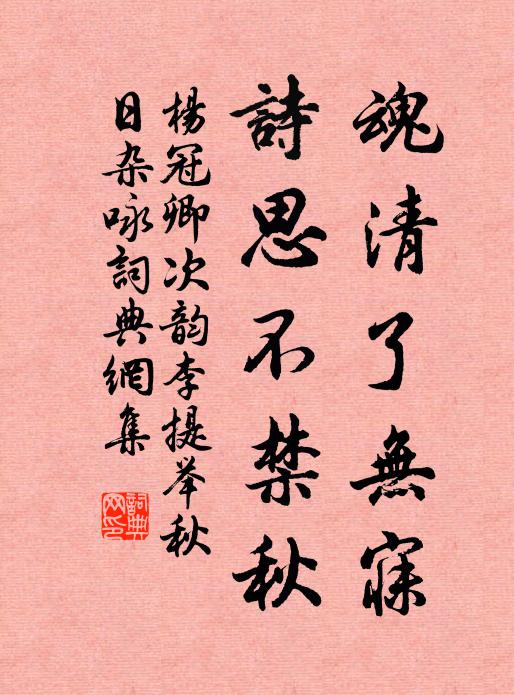 魂清了無寐
詩思不禁秋
楊冠卿次韵李提举秋
日杂咏詞典網集
詞典
网印